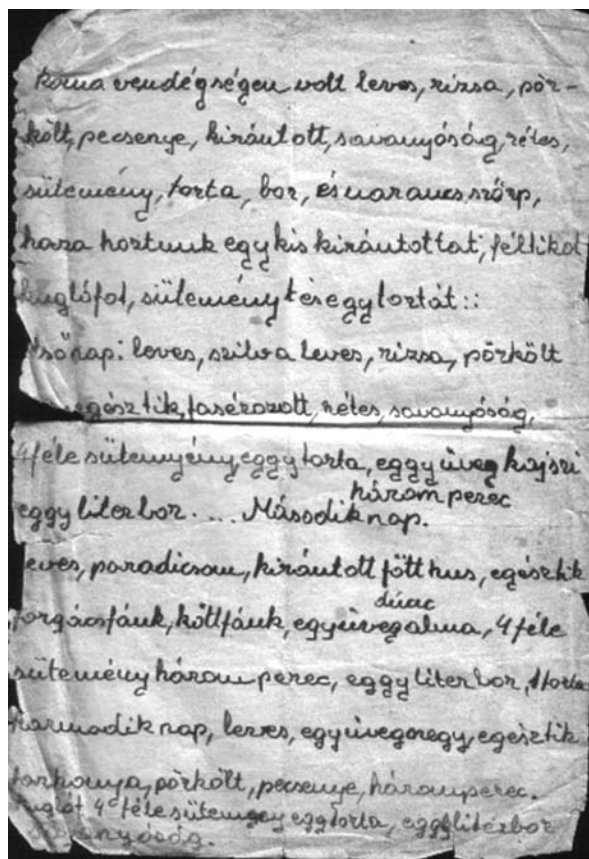 Koma vendégségen volt leves, rizsa, pör-
költ, pecsenye, kirántott, savanyóság, rétes,
sütemény, torta, bor, és narancsszörp,
haza hoztunk egy kis kirántottat, féltikot
kuglófot, süteményt és egy tortát::
nap: leves, szilva leves, rizsa, pörkölt
egésztik, fasérozott, rétes, savanyóság,
4 féle sütemyény, eggy torta, eggy üveg kajszi
három perec
eggy liter bor. .... Második nap.
leves, paradicsom, kirántott főtt hus, egésztik
dúnc
forgácsfánk, költfánk, egy üveg alma, 4 féle
sütemény három perec, eggy liter bor, 1 torta
Harmadik nap, leves, egy üveg megy, egésztik
tarhonya, pörkölt, pecsenye, három perec.
kuglót 4 féle sütemény egg torta, eggy liter bor
savanyóság.